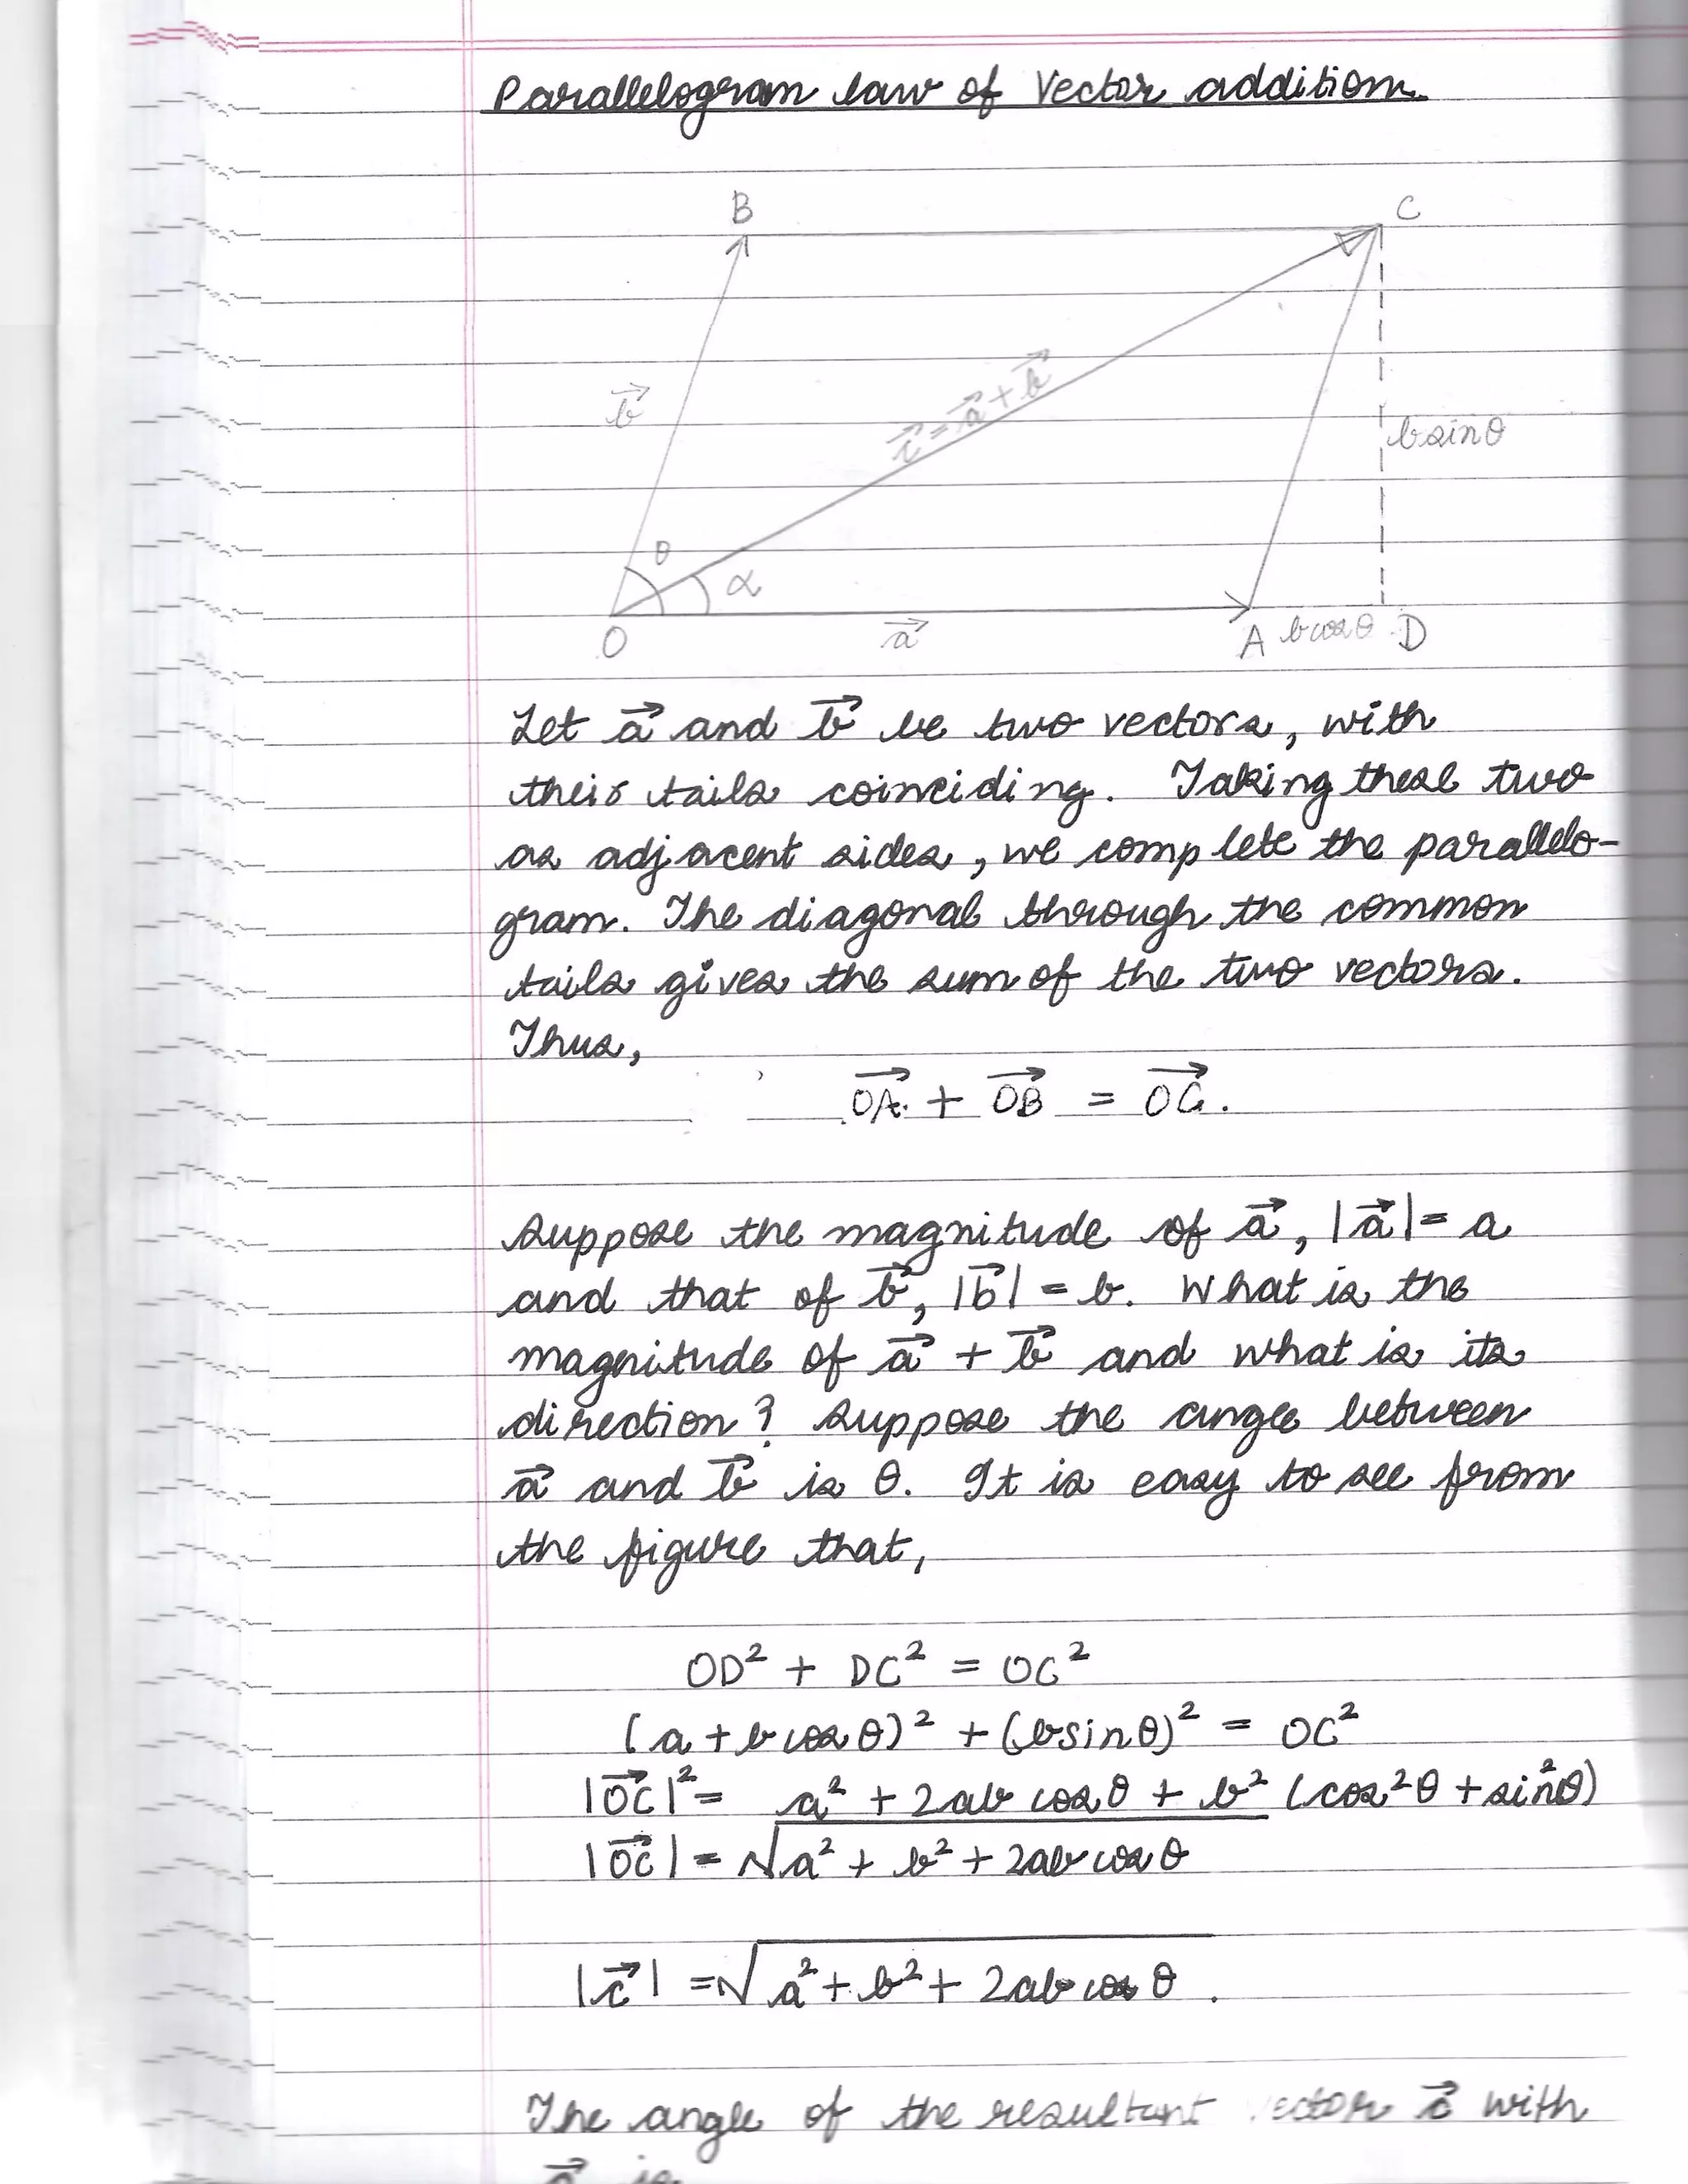 Parallelogram law of Vector addition.
B
C
b⃗
c⃗ = a⃗ + b⃗
b sinθ
θ
α
O
a⃗
A b cosθ D
Let a⃗ and b⃗ be two vectors, with
their tails coinciding. Taking these two
as adjacent sides, we complete the parallelo-
gram. The diagonal through the common
tails gives the sum of the two vectors.
Thus,
OA⃗ + OB⃗ = OC⃗.
Suppose the magnitude of a⃗, |a⃗| = a
and that of b⃗, |b⃗| = b. What is the
magnitude of a⃗ + b⃗ and what is its
direction? Suppose the angle between
a⃗ and b⃗ is θ. It is easy to see from
the figure that,
OD² + DC² = OC²
(a + b cosθ)² + (b sinθ)² = OC²
|OC⃗|² = a² + 2ab cosθ + b² (cos²θ + sin²θ)
|OC⃗| = √a² + b² + 2ab cosθ
|c⃗| = √a² + b² + 2ab cosθ.
The angle of the resultant vector c⃗ with
a⃗ is